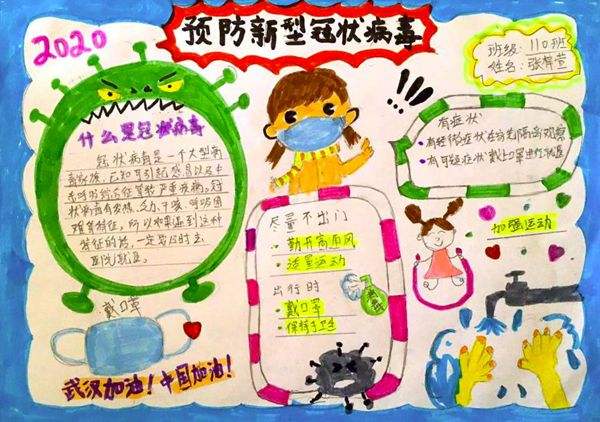 2020
预防新型冠状病毒
班级：110班
姓名：张馨萱
什么是冠状病毒
冠状病毒是一个大型病
毒家族，已知可引起感冒以及中
东呼吸综合征等较严重疾病。冠
状病毒有发烧、乏力、干咳、呼吸困
难等特征，所以如果遇到这种
特征的话，一定要及时去
医院就医。
有症状
有轻微症状在家先隔离观察
有可疑症状戴上口罩出行就医
尽量不出门
勤开窗通风
适量运动
出行时
戴口罩
保持手卫生
加强运动
戴口罩
武汉加油！中国加油！